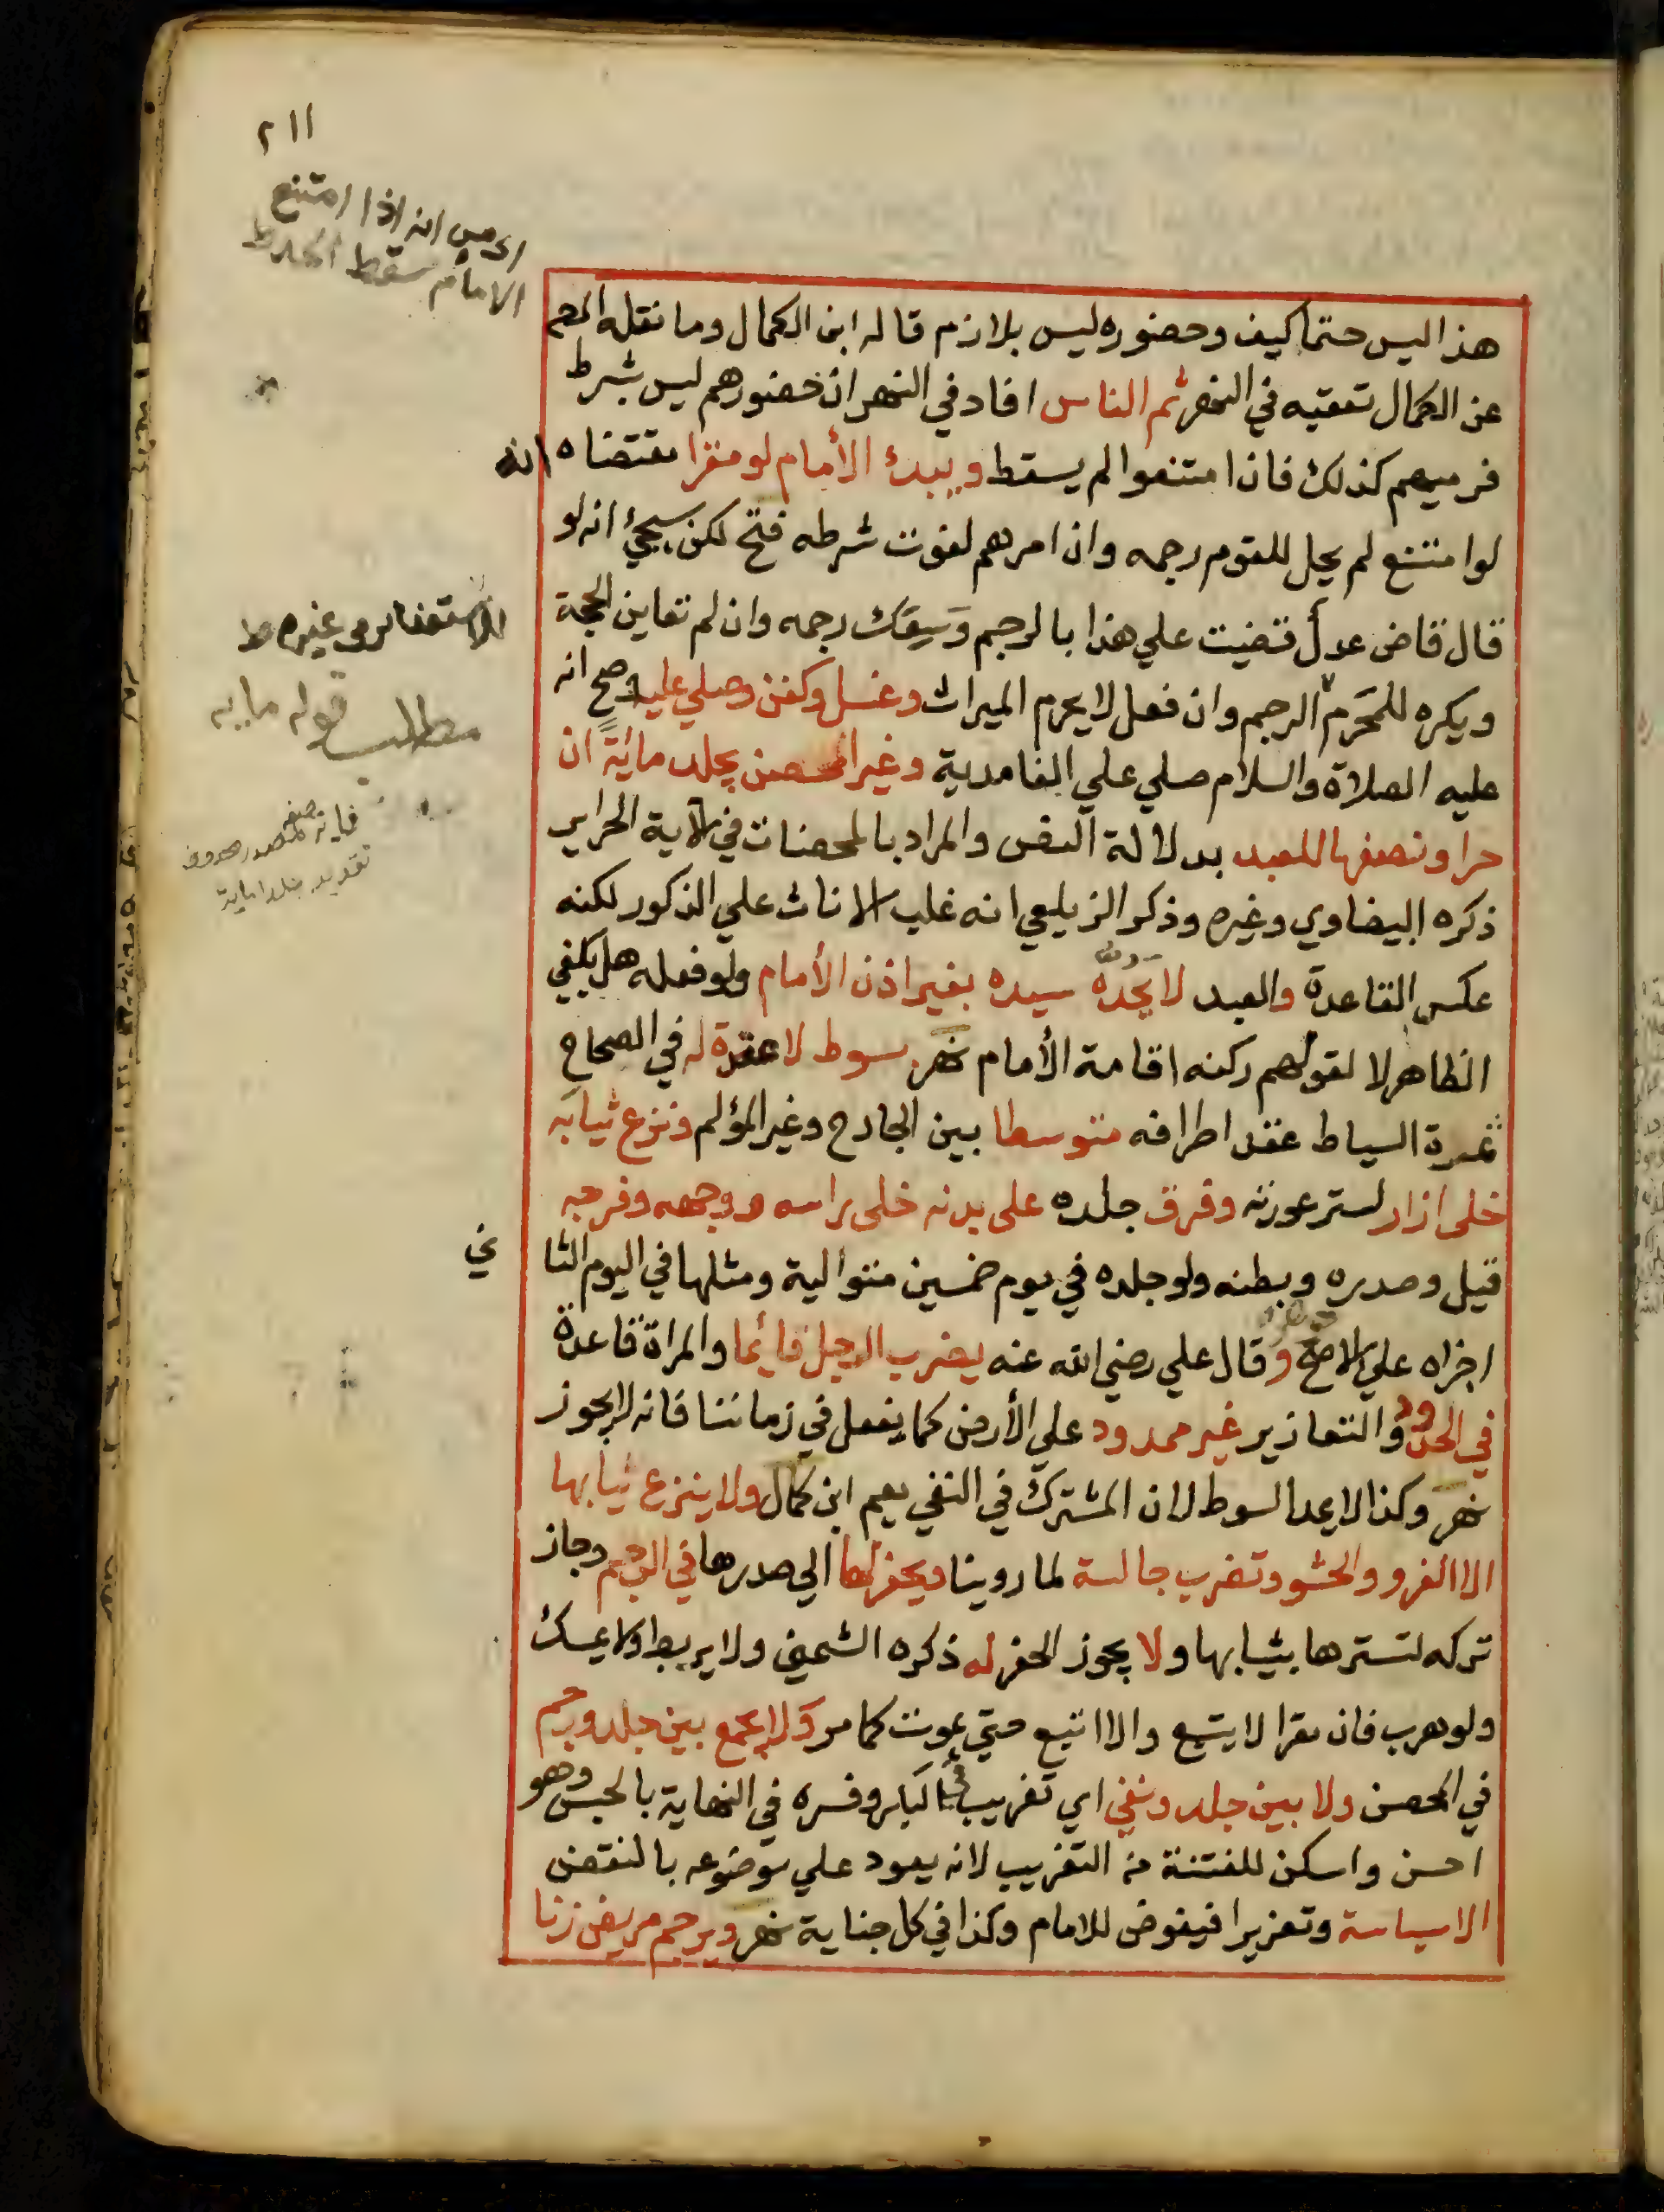 ٢١١
اى من انه اذا امتنع
الامام سقط الحد ط
هذا ليس حتما كيف وحضوره ليس بلازم قاله ابن الكمال وما نقله المص
عن الكمال تعقبه في النهر ثم الناس افاد في النهر ان حضورهم ليس بشرط
فرميهم كذلك فان امتنعوا لم يسقط ويبدئ الأمام لو مقرا مقتضاه انه
لو امتنع لم يحل للقوم رجمه وان امرهم لفوت شرطه فتح لكن سيجئ انه لو
قال قاض عدل قضيت علي هذا بالرجم وسعك رجمه وان لم تعاين الحجة
ويكره للمحرم الرجم وان فعل لا يحرم الميراث وغسل وكفن وصلي عليه وصح انه
عليه الصلاة والسلام صلي علي الغامدية وغير المحصن يجلد مائة ان
حرا ونصفها للعبد بدلالة النص والمراد بالمحصنات في الاية الحراير
ذكره البيضاوي وغيره وذكر الزيلعي انه غلب الاناث علي الذكور لكنه
عكس القاعدة والعبد لا يحده سيده بغير اذن الأمام ولو فعله هل يكفي
الظاهر لا لقولهم ركنه اقامة الأمام نهر بسوط لا عقدة له في الصحاح
ثمرة السياط عقد اطرافه متوسطا بين الجارح وغير المؤلم ونزع ثيابه
خلى ازار لستر عورته وفرق جلده على بدنه خلى راسه ووجهه وفرجه
قيل وصدره وبطنه ولو جلده في يوم خمسين متوالية ومثلها في اليوم الثا
ني
اجزاه علي الاصح وقال علي رضي الله عنه يضرب الرجل قائما والمراة قاعدة
في الحدود والتعازير غير ممدود علي الأرض كما يفعل في زماننا فانه لا يجوز
نهر وكذا لا يمد السوط لان المشترك في النفي يعم ابن كمال ولا ينزع ثيابها
الا الفرو والحشو وتضرب جالسة لما روينا ويحفر لها الي صدرها في الرجم وجاز
تركه لتسترها بثيابها ولا يجوز الحفر له ذكره الشمني ولا يربط ولا يمسك
ولو هرب فان مقرا لا يتبع والا اتبع حتي يموت كما مر ولا يجمع بين جلد ورجم
في المحصن ولا بين جلد ونفي اي تغريب في البكر وفسره في النهاية بالحبس وهو
احسن واسكن للفتنة من التغريب لانه يعود علي موضوعه بالنقض
الا سياسة وتعزيرا فيفوض للامام وكذا في كل جناية نهر ويرجم مريض زنا
مطلب قوله مايه